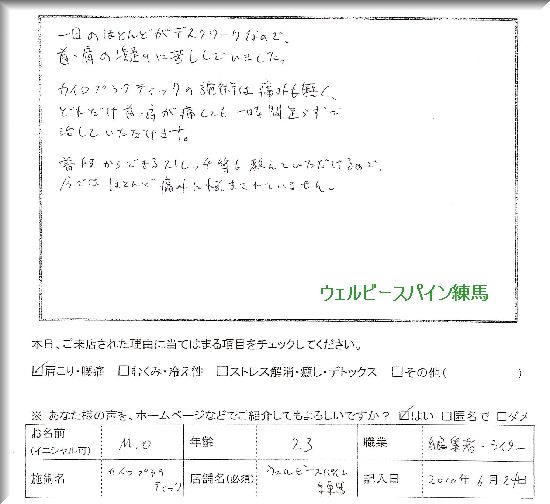 一日のほとんどがデスクワークなので、
首・肩の凝りに苦しんでいました。
カイロプラクティックの施術は痛みも無く、
どれだけ首・肩が痛くても一時間足らずで
治していただけます。
普段からできるストレッチ等も教えていただけるので、
今ではほとんど痛みに悩まされていません。
ウェルビースパイン練馬
本日、ご来店された理由に当てはまる項目をチェックしてください。
☑肩こり・腰痛 □むくみ・冷え性 □ストレス解消・癒し・デトックス □その他( )
※ あなた様の声を、ホームページなどでご紹介してもよろしいですか？ ☑はい □匿名で □ダメ
お名前 (イニシャル可) M.O 年齢 23 職業 編集者・ライター
施術名 カイロプラクティック 店舗名(必須) ウェルビースパイン練馬 記入日 2010年6月24日